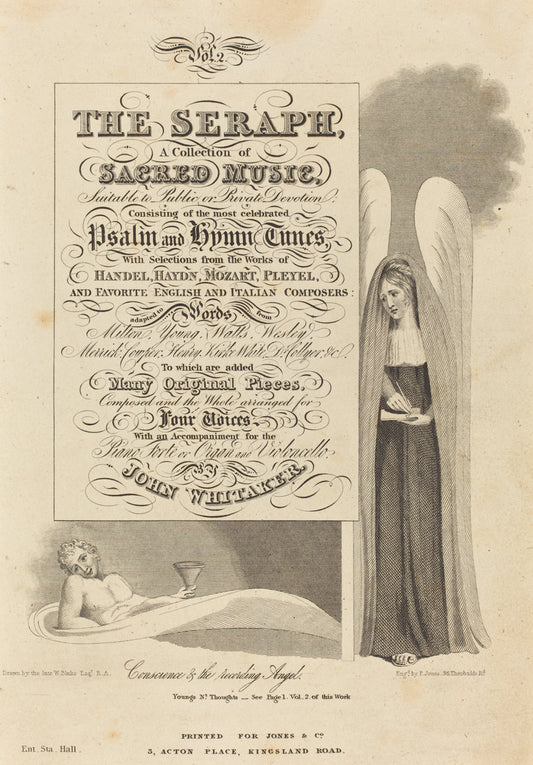 Vol. 2.
THE SERAPH,
A Collection of
SACRED MUSIC,
Suitable to Public or Private Devotion:
Consisting of the most celebrated
Psalm and Hymn Tunes,
With Selections from the Works of
HANDEL, HAYDN, MOZART, PLEYEL,
AND FAVORITE ENGLISH AND ITALIAN COMPOSERS:
adapted to Words from
Milton, Young, Watts, Wesley,
Merrick, Cowper, Henry, Kirke White, Dr. Collyer, &c.
To which are added
Many Original Pieces,
Composed and the Whole arranged for
Four Voices,
With an Accompaniment for the
Piano Forte or Organ and Violoncello,
BY
JOHN WHITAKER.
Drawn by the late W. Blake Esqr. R.A.
Engd. by P. Jones. Theobalds Rd.
Conscience & the recording Angel.
Youngs Nt. Thoughts — See Page 1. Vol. 2 of this Work
PRINTED FOR JONES & Co.
Ent. Sta. Hall.
3, ACTON PLACE, KINGSLAND ROAD.